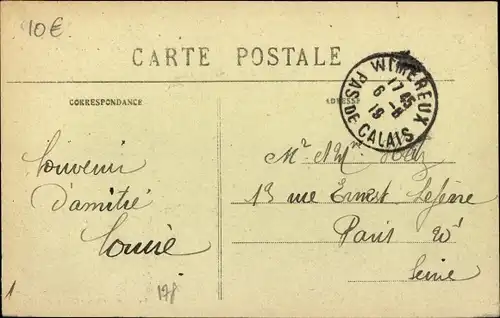 10€
CARTE POSTALE
CORRESPONDANCE
ADRESSE
WIMEREUX
17 45
6 -8
19
PAS DE CALAIS
Souvenir
d'amitié
Mr et Mme
13 rue Ernest Lefèvre
Paris
Seine
1